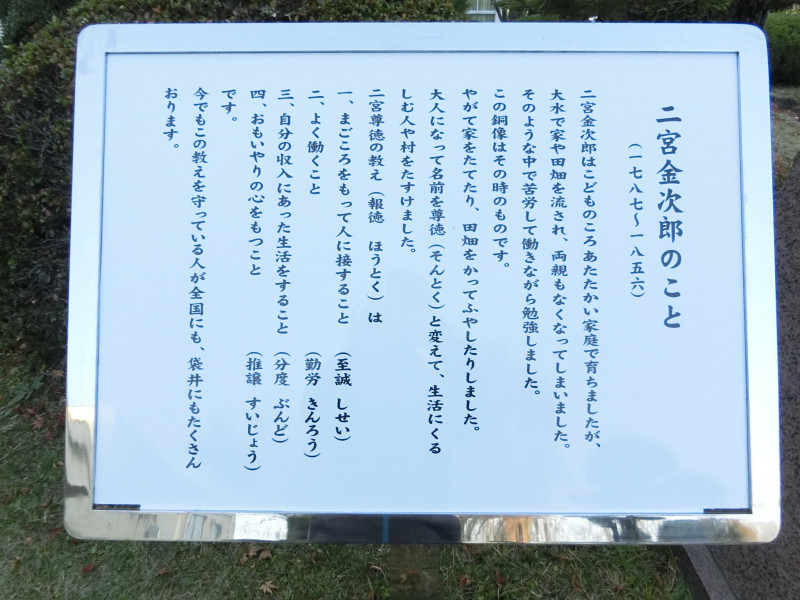 二宮金次郎のこと
（一七八七～一八五六）
二宮金次郎はこどものころあたたかい家庭で育ちましたが、
大水で家や田畑を流され、両親もなくなってしまいました。
そのような中で苦労して働きながら勉強しました。
この銅像はその時のものです。
やがて家をたてたり、田畑をかってふやしたりしました。
大人になって名前を尊徳（そんとく）と変えて、生活にくる
しむ人や村をたすけました。
二宮尊徳の教え（報徳　ほうとく）は
一、まごころをもって人に接すること　（至誠　しせい）
二、よく働くこと　（勤労　きんろう）
三、自分の収入にあった生活をすること　（分度　ぶんど）
四、おもいやりの心をもつこと　（推譲　すいじょう）
です。
今でもこの教えを守っている人が全国にも、袋井にもたくさん
おります。